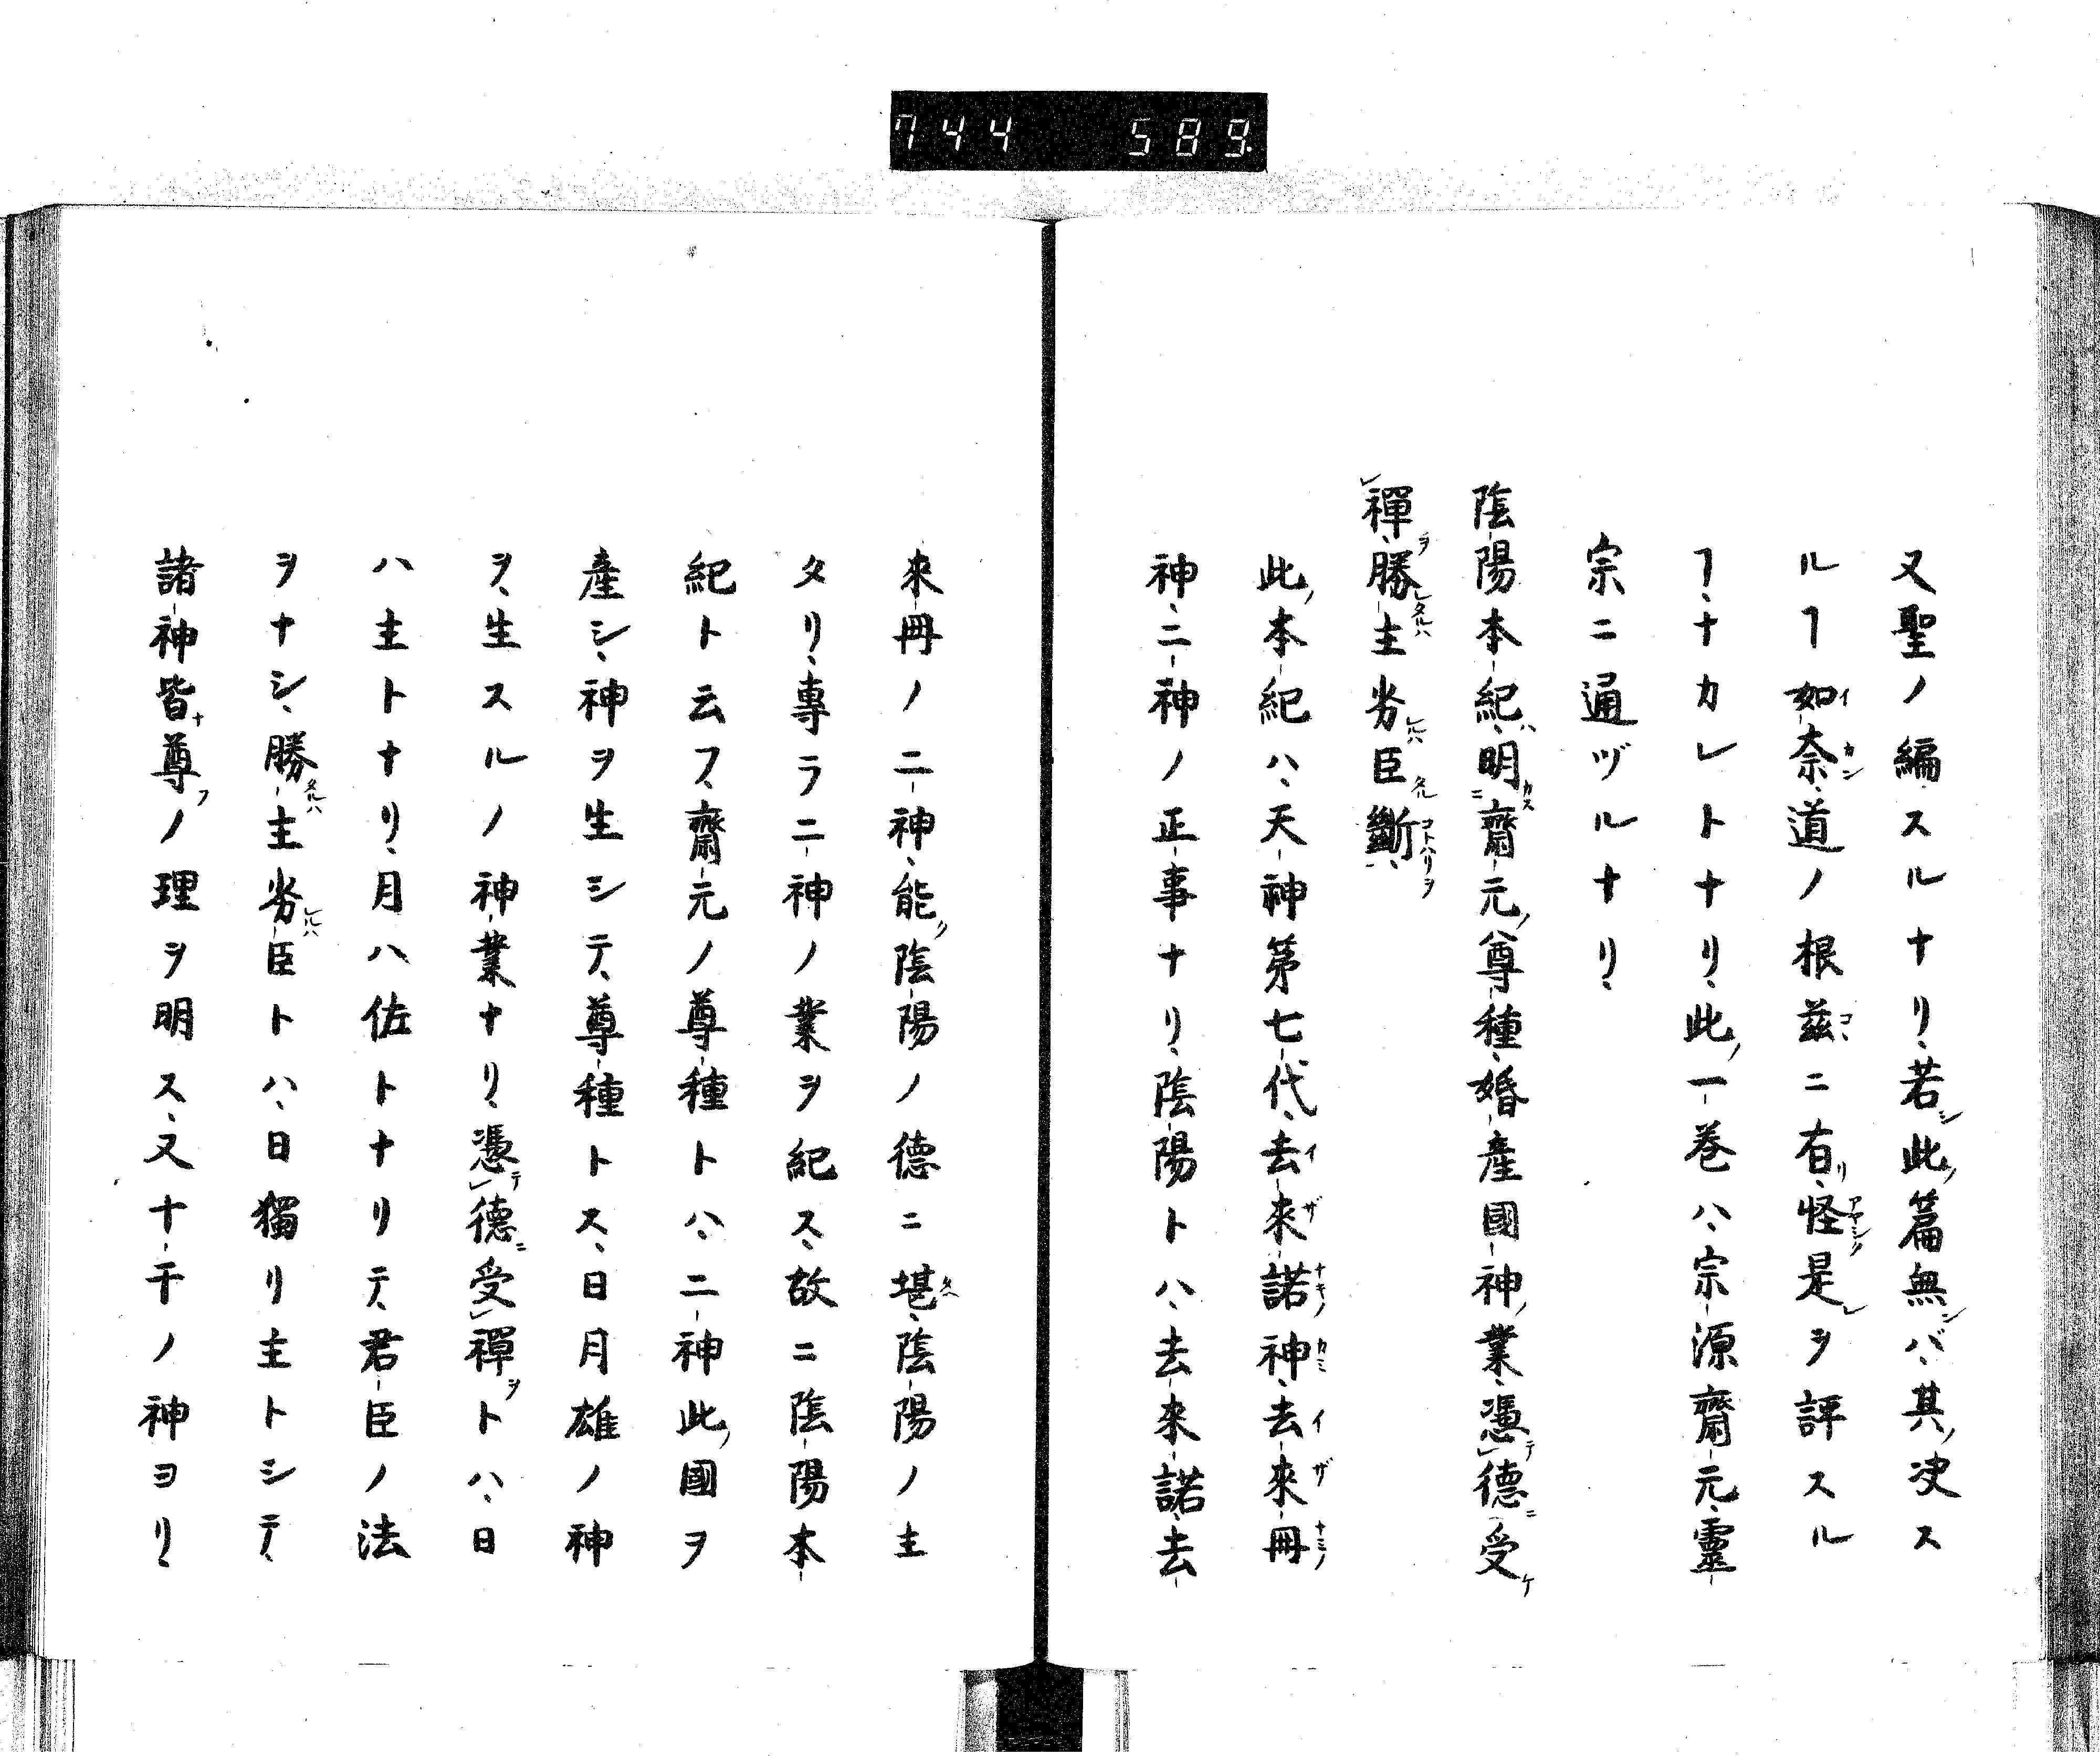 744 589.
又聖ノ編スルナリ、若シ此ノ篇無シバ、其ノ決ス
ルヿ如奈イカン、道ノ根茲コヽニ有リ、怪アヤシク是レヲ評スル
ヿ、ナカレトナリ、此ノ一巻ハ、宗源齋元、靈
宗ニ通ヅルナリ、
陰陽本紀ハ、明ニカス齋元ノ尊種、婚産國神ノ業、憑テレ德ニ受ケ
レ禪ヲ、勝レタルハ主劣レルハ臣タル斷コトハリヲ、
此ノ本紀ハ、天神第七代、去イ來ザ諾ナキノ神カミ、去イ來ザ冊ナミノ
神、二神ノ正事ナリ、陰陽トハ、去來諾、去
來冊ノ二神、能ク陰陽ノ德ニ堪タヘ、陰陽ノ主
タリ、專ラ二神ノ業ヲ紀ス、故ニ陰陽本
紀ト云フ、齋元ノ尊種トハ、二神此ノ國ヲ
産シ、神ヲ生シテ、尊種トス、日月雄ノ神
ヲ、生スルノ神業ナリ、憑テレ德ニ受レ禪ヲトハ、日
ハ主トナリ、月ハ佐トナリテ、君臣ノ法
ヲナシ、勝タルハ主劣レルハ臣トハ、日獨リ主トシテ、
諸神皆ナ尊フノ理ヲ明ス、又十干ノ神ヨリ、